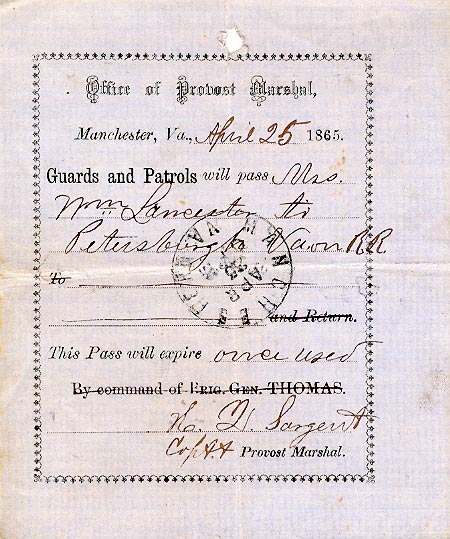 Office of Provost Marshal,
Manchester, Va., April 25 1865.
Guards and Patrols will pass Mrs.
Wm Lancester to
Petersburgh
RR
To
and Return.
This Pass will expire once used
By command of Brig. Gen. THOMAS.
H. Sargent
Capt. Provost Marshal.
MANCHESTER VA
APR 25